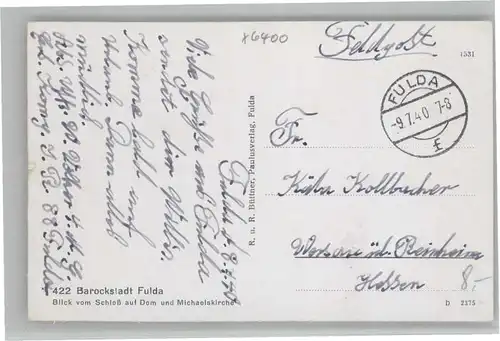 x6400
Feldpost
1531
FULDA
-9.7.40 7-8
f
Fr.
Käthe Kollbacher
Wersau üb. Reinheim
Hessen
8.-
Fulda 8.7.40
Viele Grüße aus Fulda
sendet dir Willi.
Komme bald auf
Urlaub. Dann
mündlich
88 Fulda
R. u. R. Büttner, Paulusverlag, Fulda
422 Barockstadt Fulda
Blick vom Schloß auf Dom und Michaelskirche
D 2375